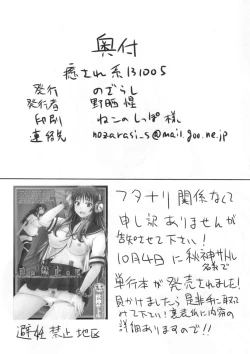 奥付
癒され系131005
発行 のざらし
発行者 野晒惺
印刷 ねこのしっぽ様
連絡先 nozarasi_s@mail.goo.ne.jp
フタナリ関係なくて
申し訳ありませんが
告知させて下さい!
10月4日に秋神サトル
名義で
単行本が発売されました!
見かけましたら是非手に取って
みて下さい!裏表紙に内容の
詳細ありますので!!
避妊禁止地区